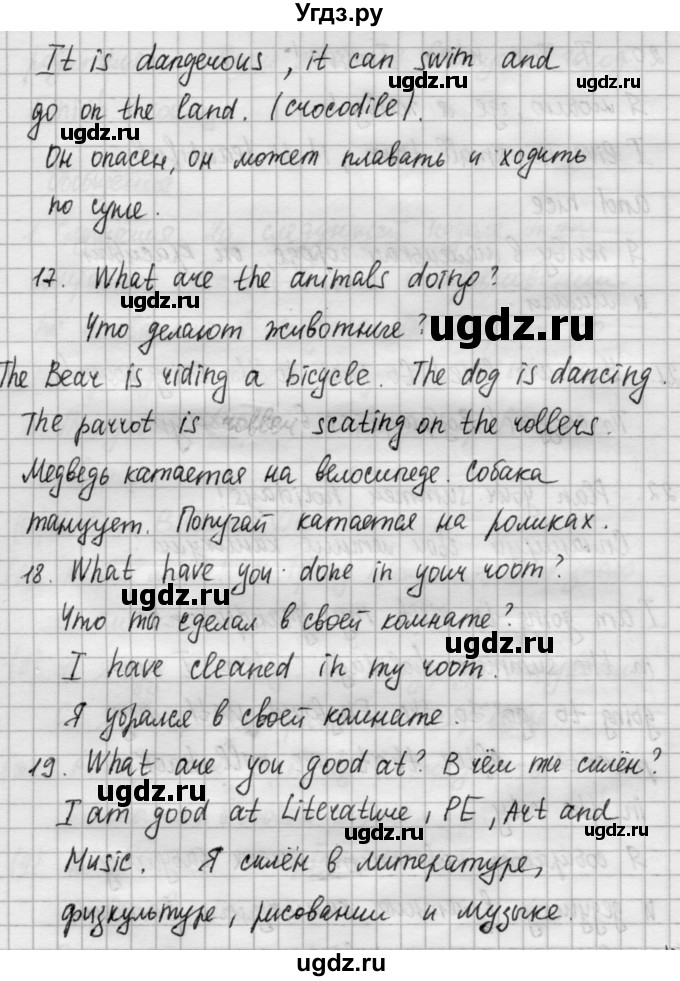 Угдз.ру
It is dangerous, it can swim and
go on the land. (crocodile).
Он опасен, он может плавать и ходить
по суше.
17. What are the animals doing?
Что делают животные?
The Bear is riding a bicycle. The dog is dancing.
The parrot is scating on the rollers.
Медведь катается на велосипеде. Собака
танцует. Попугай катается на роликах.
18. What have you done in your room?
Что ты сделал в своей комнате?
I have cleaned in my room.
Я убрался в своей комнате.
19. What are you good at? В чём ты силён?
I am good at Literature, PE, Art and
Music. Я силён в литературе,
физкультуре, рисовании и музыке.
ugdz.ru
ugdz.ru
ugdz.ru
ugdz.ru
ugdz.ru
ugdz.ru
ugdz.ru
ugdz.ru
ugdz.ru